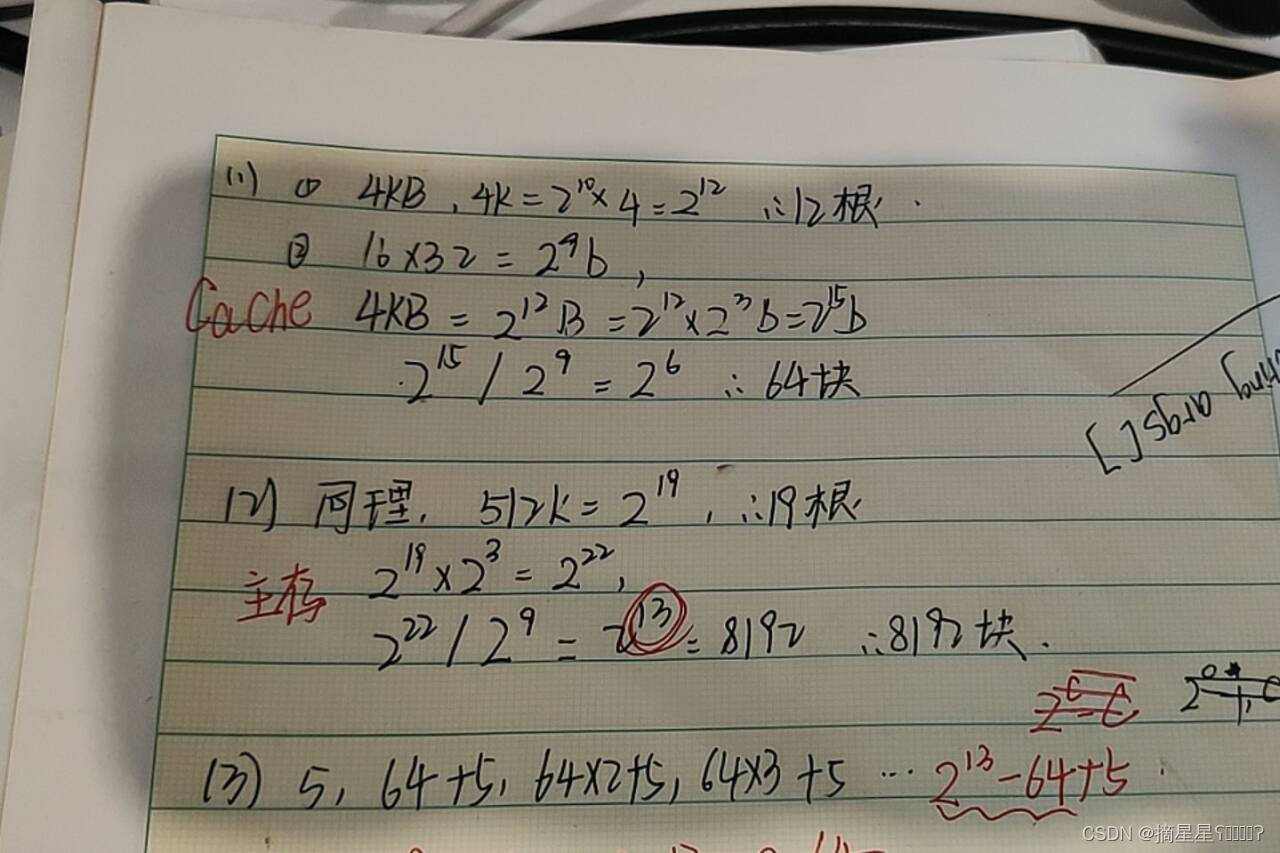 (1) ① 4KB,4K=2^10×4=2^12 ∴12根.
② 16×32=2^9b,
Cache 4KB=2^12B=2^12×2^3b=2^15b
2^15/2^9=2^6 ∴64块
(2) 同理,512K=2^19,∴19根
主存 2^19×2^3=2^22,
2^22/2^9=2^13=8192 ∴8192块.
(3) 5,64+5,64×2+5,64×3+5…2^13-64+5.
args[]
CSDN @摘星星